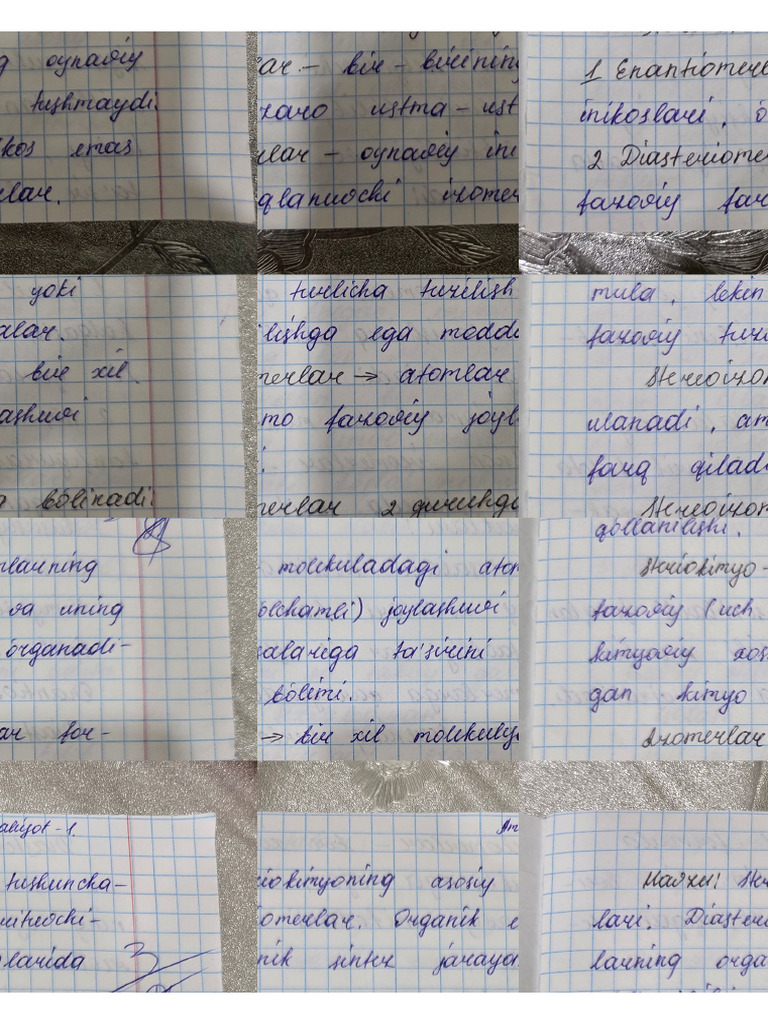 g oynaviy
tushmaydi.
ikos emas
lar.
ar. – bir – birining
zaro ustma – ust
lar – oynaviy ini
qlanuvchi izomer
1 Enantiomerl
inikoslari, o
2 Diasteriome
fazoviy far
yoki
alar.
bir xil.
ashuvi
bólinadi.
turlicha tuzilish
ilishga ega modda
merlar → atomlar
mo fazoviy joyl
merlar 2 guruhga
mula, lekin
fazoviy tuzi
Stereoizom
ulanadi, am
farq qilad
Stereoizom
rlarning
va uning
órganadi-
ar for-
molekuladagi atom
ólchamli) joylashuvi
salariga ta'sirini
bólimi.
→ bir xil molekulya
qóllanilishi.
Steriokimyo –
fazoviy (uch
kimyoviy xos
gan kimyo
Izomerlar
aliyot – 1.
tushuncha-
uvchi-
larida
Am
riokimyoning asosiy
omerlar. Organik
nik sintez jaraya
Mavzu: Ste
lari. Diasteri
larning orga